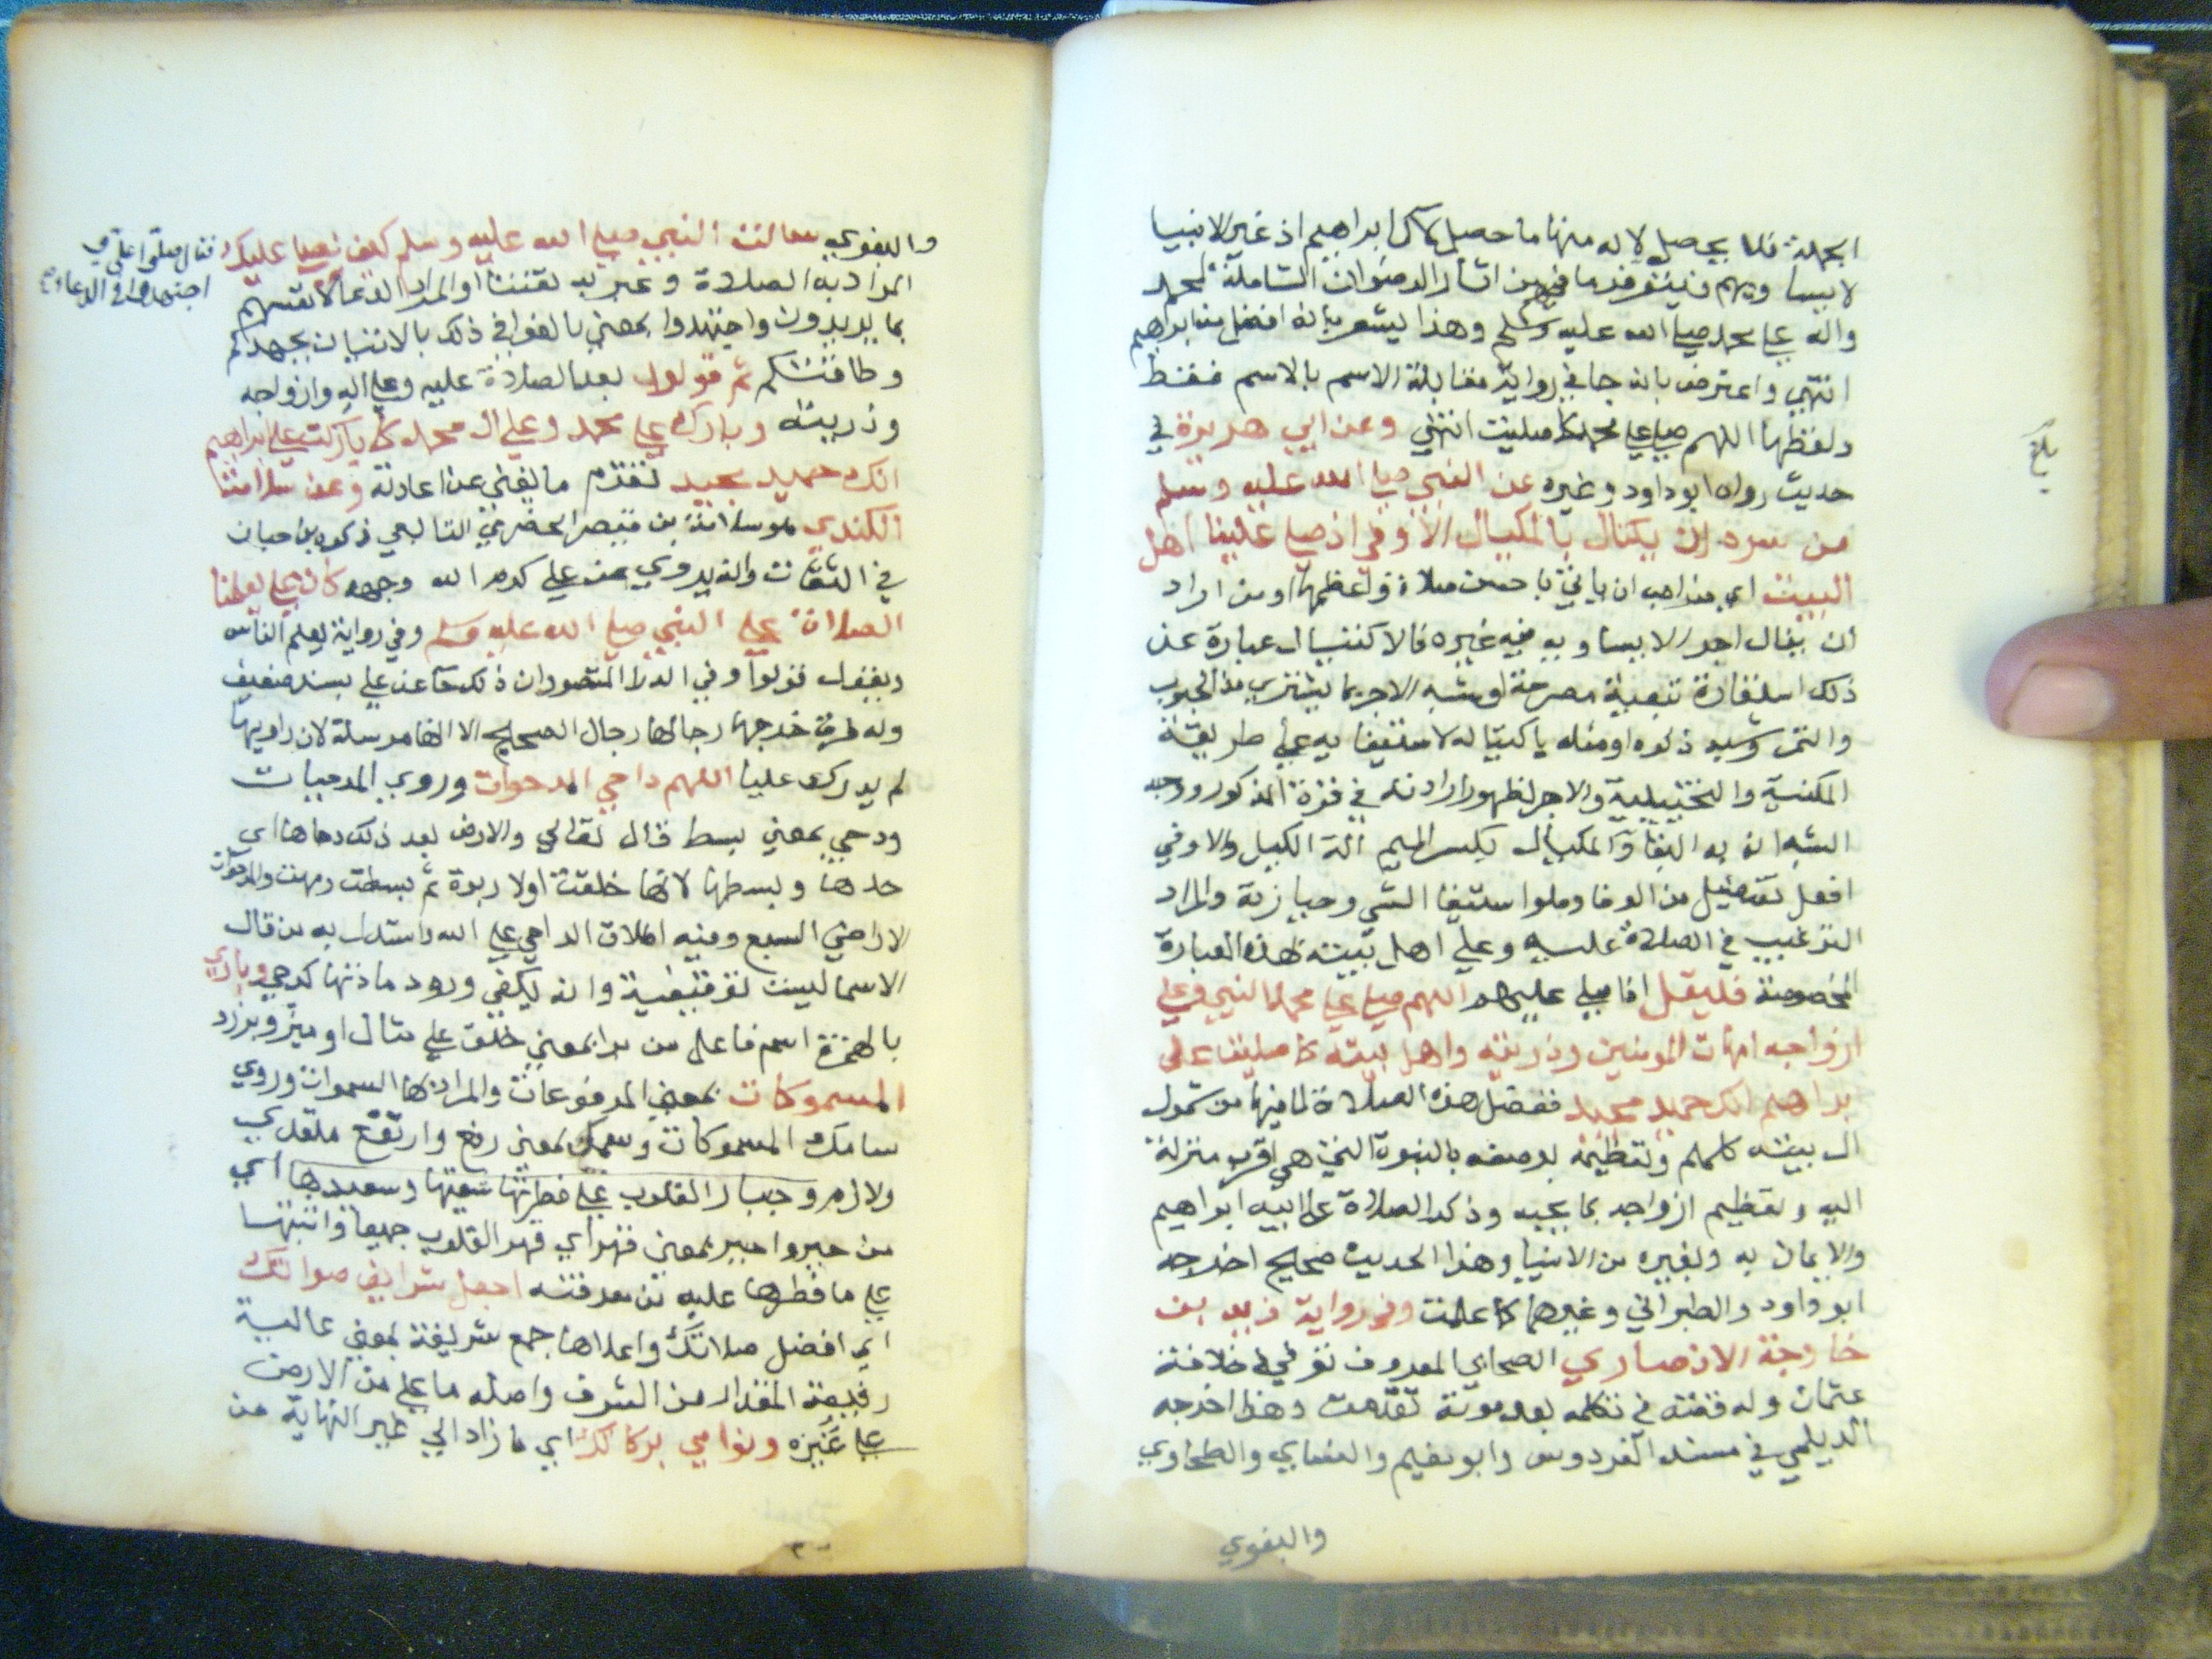 الجملة فلا يحصل لاله منها ما حصل لال ابراهيم اذ غير الانبيا
لا يساويهم فيتوفر ما فيهن اثار الرضوان الشاملة لمحمد
واله علي محمد صلي الله عليه وسلم وهذا يشعر بانه افضل من ابراهيم
انتهي واعترض بانه جا في رواية مقابلة الاسم بالاسم فقط
ولفظها اللهم صل علي محمد كما صليت انتهي وعن ابي هريرة في
حديث رواه ابو داود وغيره عن النبي صلي الله عليه وسلم
من سره ان يكتال بالمكيال الاوفي اذ صلي علينا اهل
البيت اي من احب ان ياتي باحسن صلاة واعظمها او من اراد
ان ينال اجرا لا يساويه فيه غيره فالاكتيال عبارة عن
ذلك استعارة تبعية مصرحة او شبه الاجر بما يشتري من الحبوب
والتمر وشبه ذكره او مثاله باكتياله لاستيفايه علي طريقة
المكنية والتخييلية والاجر لظهور ارادته في قوة المذكور ووجه
الشبه انه به البقا والمكيال بكسر الميم الة الكيل والاوفي
افعل تفضيل من الوفا وهو استيفا الشي وحيازته والمراد
الترغيب في الصلاة عليه وعلي اهل بيته بهذه العبارة
المخصوصة فليقل اذا صلي عليهم اللهم صل علي محمد النبي وعلي
ازواجه امهات المومنين وذريته واهل بيته كما صليت علي
ابراهيم انك حميد مجيد ففضل هذه الصلاة لما فيها من شمول
ال بيته كلهم وتعظيمه بوصفه بالنبوة التي هي اقرب منزلة
اليه وتعظيم ازواجه بما يجب وذكر الصلاة علي ابيه ابراهيم
والايمان به وبغيره من الانبيا وهذا الحديث صحيح اخرجه
ابو داود والطبراني وغيرهما كما علمت وفي رواية زيد بن
خارجة الانصاري الصحابي المعروف توفي في خلافة
عثمان وله قصة في تكلمه بعد موته تقدمت وهذا اخرجه
الديلمي في مسند الفردوس وابو نعيم والنساي والطحاوي
والبغوي
بلغ
والبغوي سالت النبي صلي الله عليه وسلم كيف نصلي عليك
فقال صلوا علي
واجتهدوا في الدعا
المراد به الصلاة وعبر به تفننا او المراد الدعا لانفسهم
بما يريدون واجتهدوا بمعني بالغوا في ذلك بالاتيان بجهدكم
وطاقتكم ثم قولوا بعد الصلاة عليه وعلي اله وازواجه
وذريته وبارك علي محمد وعلي ال محمد كما باركت علي ابراهيم
انك حميد مجيد تقدم ما يغني عن اعادته وعن سلامة
الكندي هو سلامة بن قيصر الحضرمي التابعي ذكره بن حبان
في الثقات وانه يروي عن علي كرم الله وجهه كان علي يعلمنا
الصلاة علي النبي صلي الله عليه وسلم وفي رواية يعلم الناس
ويقول قولوا وفي الدر المنضود ان ذلك جا عن علي بسند ضعيف
وله طريق خرجها رجالها رجال الصحيح الا انها مرسلة لان راويها
لم يدرك عليا اللهم داحي المدحوات وروي المدحيات
ودحي بمعني بسط قال تعالي والارض بعد ذلك دحاها اي
مدها وبسطها لانها خلقت اولا ربوة ثم بسطت ومهدت والمدحوات
الاراضي السبع وفيه اطلاق الداحي علي الله واستدل به من قال
الاسما ليست توقيفية وانه يكفي ورود مادتها كدحي وباري
بالهمزة اسم فاعل من برا بمعني خلق علي مثال او ميز وبرز
المسموكات بمعني المرفوعات والمراد بها السموات وروي
سامك المسموكات وسمك بمعني رفع وارتفع متعدي
ولازم وجبار القلوب علي فطرتها شقيها وسعيدها اي
من جبر واجبر بمعني قهر اي قهر القلوب جميعا واثبتها
علي ما فطرها عليه من معرفته اجعل شرايف صلواتك
اي افضل صلاتك واعلاها جمع شريفة بمعني عالية
رفيعة المقدار من الشرف واصله ما علا من الارض
علي غيره ونوامي بركاتك اي ما زاد الي غير النهاية من